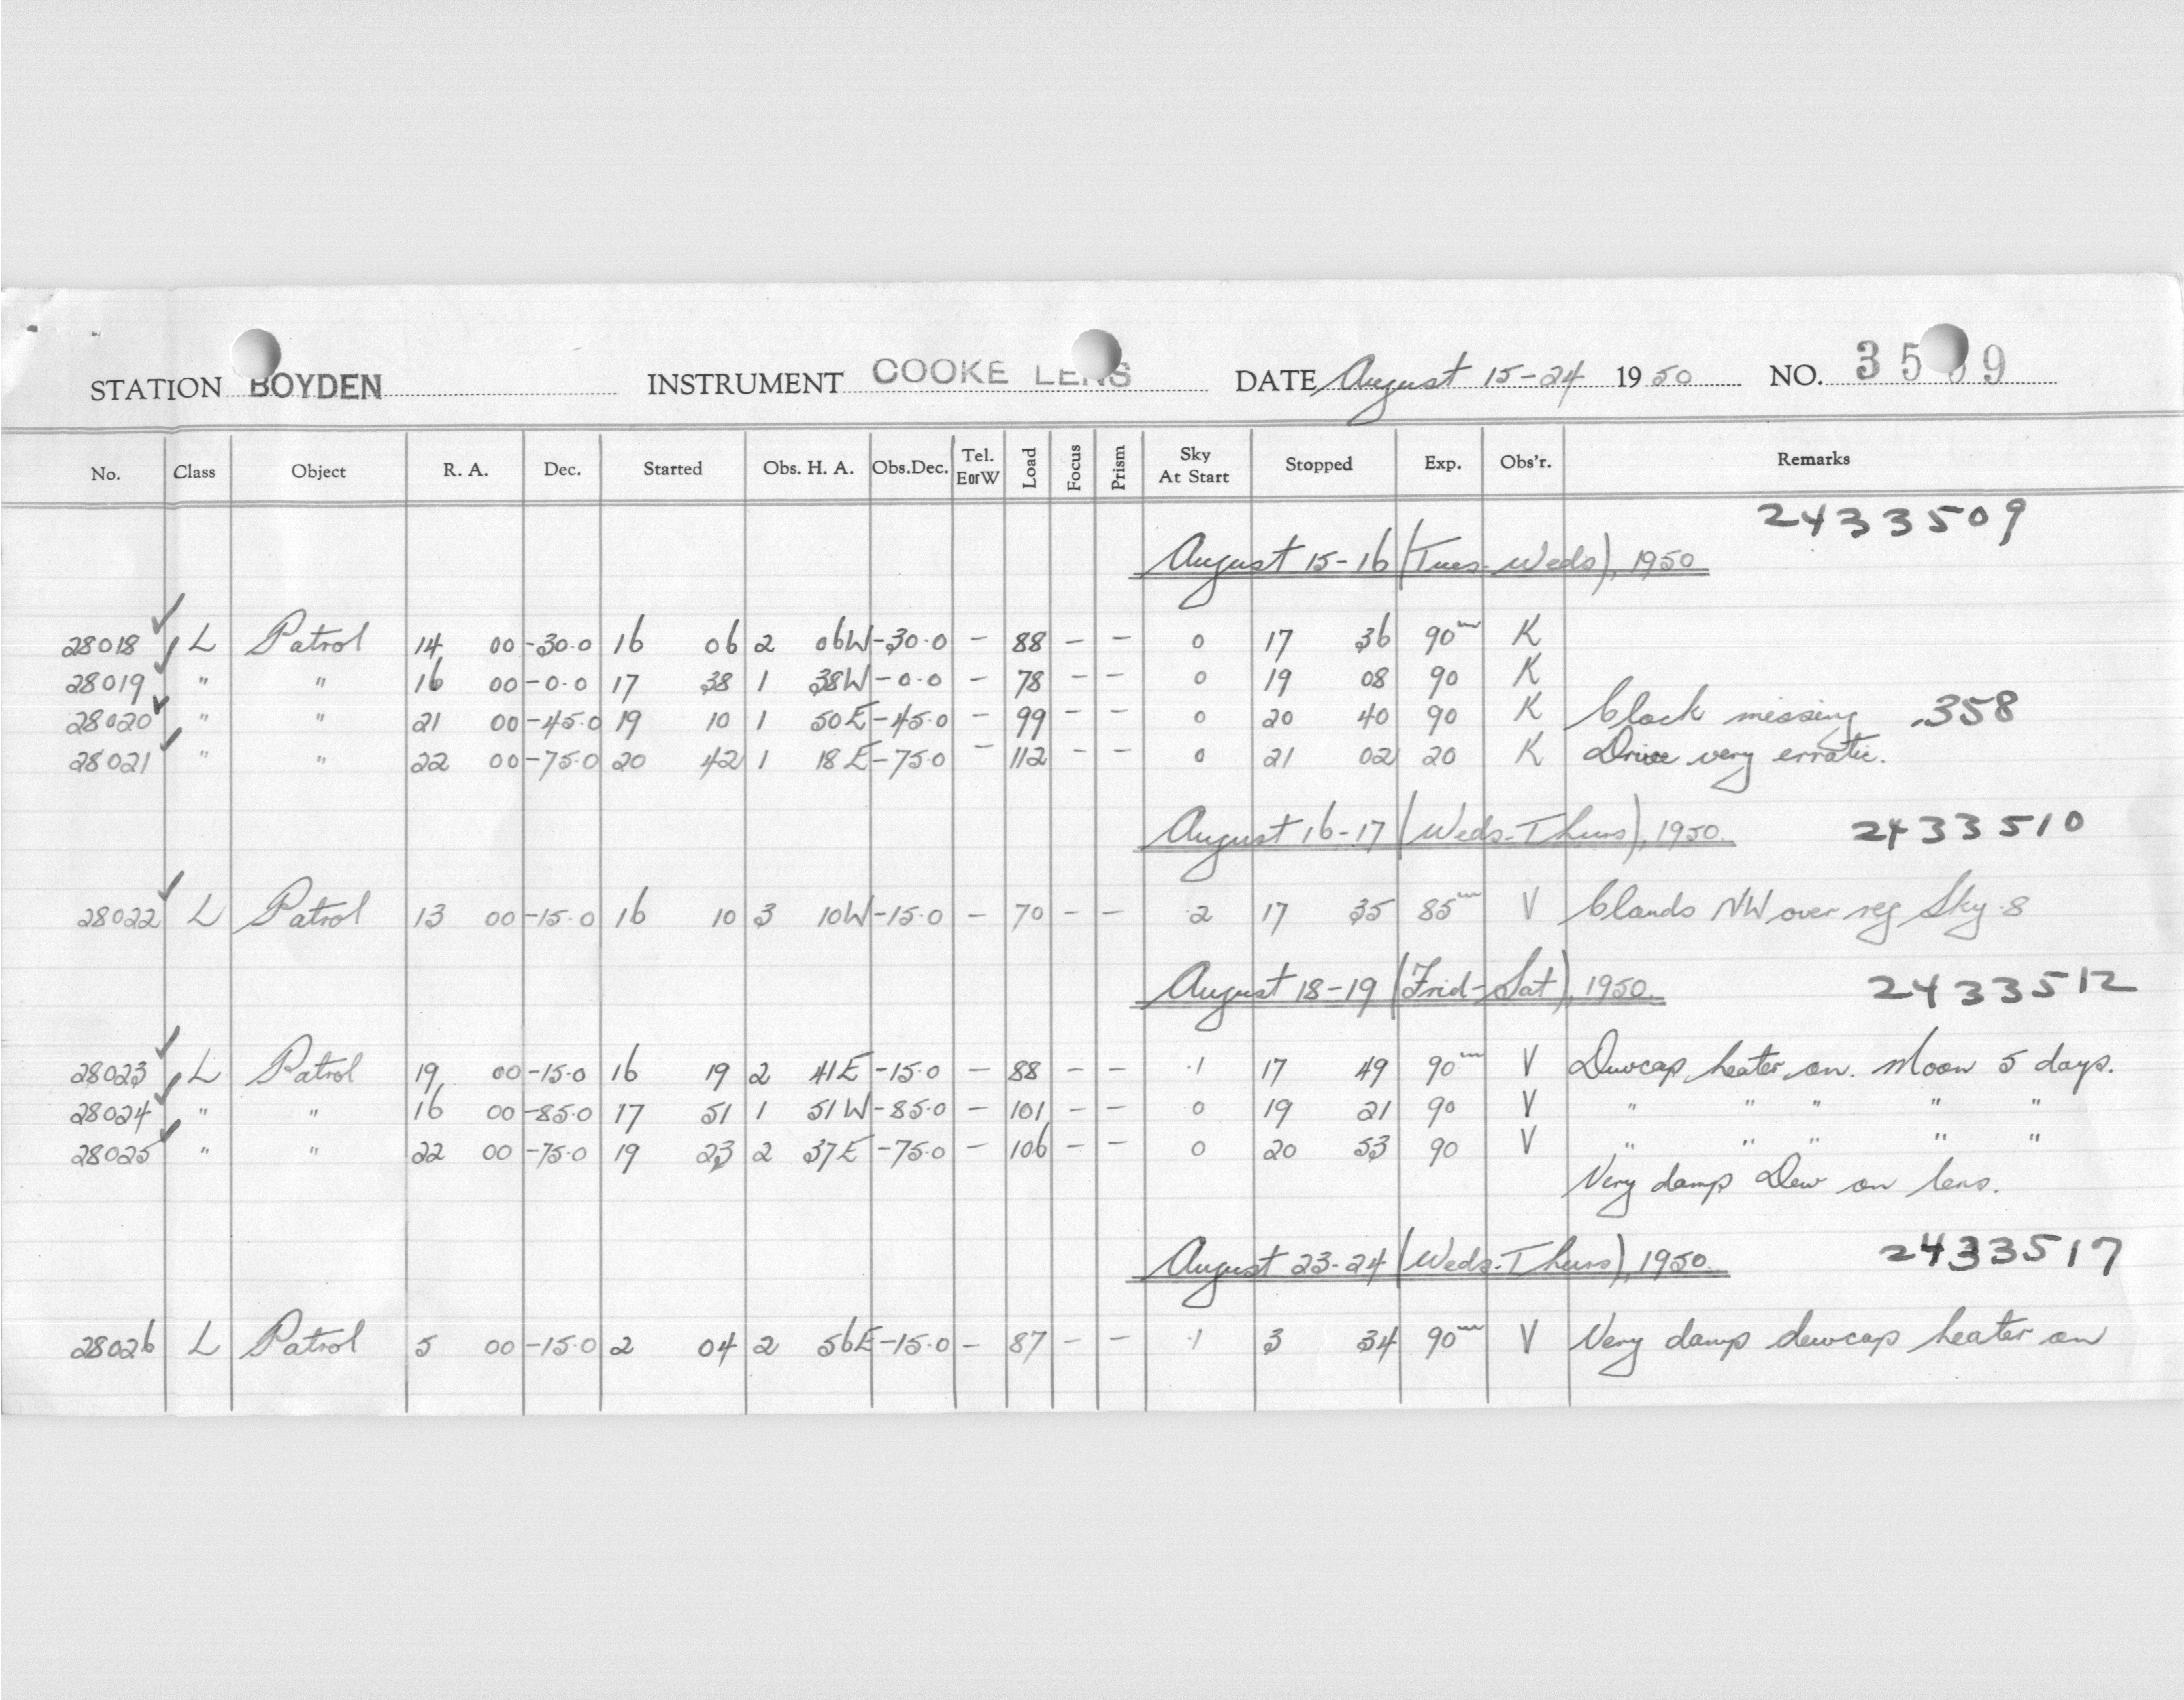 STATION BOYDEN INSTRUMENT COOKE LENS DATE August 15-24 1950 NO. 35 9
No. Class Object R. A. Dec. Started Obs. H. A. Obs.Dec. Tel. EorW Load Focus Prism Sky At Start Stopped Exp. Obs'r. Remarks
2433509
August 15-16 (Tues-Weds), 1950
28018 ✓ L Patrol 14 00 -30.0 16 06 2 06W -30.0 - 88 - - 0 17 36 90m K
28019 ✓ " " 16 00 -0.0 17 38 1 38W -0.0 - 78 - - 0 19 08 90 K
28020 ✓ " " 21 00 -45.0 19 10 1 50E -45.0 - 99 - - 0 20 40 90 K Clock missing .358
28021 ✓ " " 22 00 -75.0 20 42 1 18E -75.0 - 112 - - 0 21 02 20 K Drive very erratic.
August 16-17 (Weds-Thurs), 1950. 2433510
28022 ✓ L Patrol 13 00 -15.0 16 10 3 10W -15.0 - 70 - - .2 17 35 85m V Clouds NW over reg Sky .8
August 18-19 (Frid-Sat), 1950. 2433512
28023 ✓ L Patrol 19 00 -15.0 16 19 2 41E -15.0 - 88 - - .1 17 49 90m V Dewcap heater on. Moon 5 days.
28024 ✓ " " 16 00 -85.0 17 51 1 51W -85.0 - 101 - - 0 19 21 90 V " " " " "
28025 ✓ " " 22 00 -75.0 19 23 2 37E -75.0 - 106 - - 0 20 53 90 V " " " " "
Very damp Dew on lens.
August 23-24 (Weds-Thurs), 1950. 2433517
28026 L Patrol 5 00 -15.0 2 04 2 56E -15.0 - 87 - - .1 3 34 90m V Very damp dewcap heater on